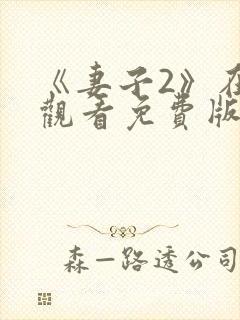 《妻子2》在
觀看免費版
森—路透公司